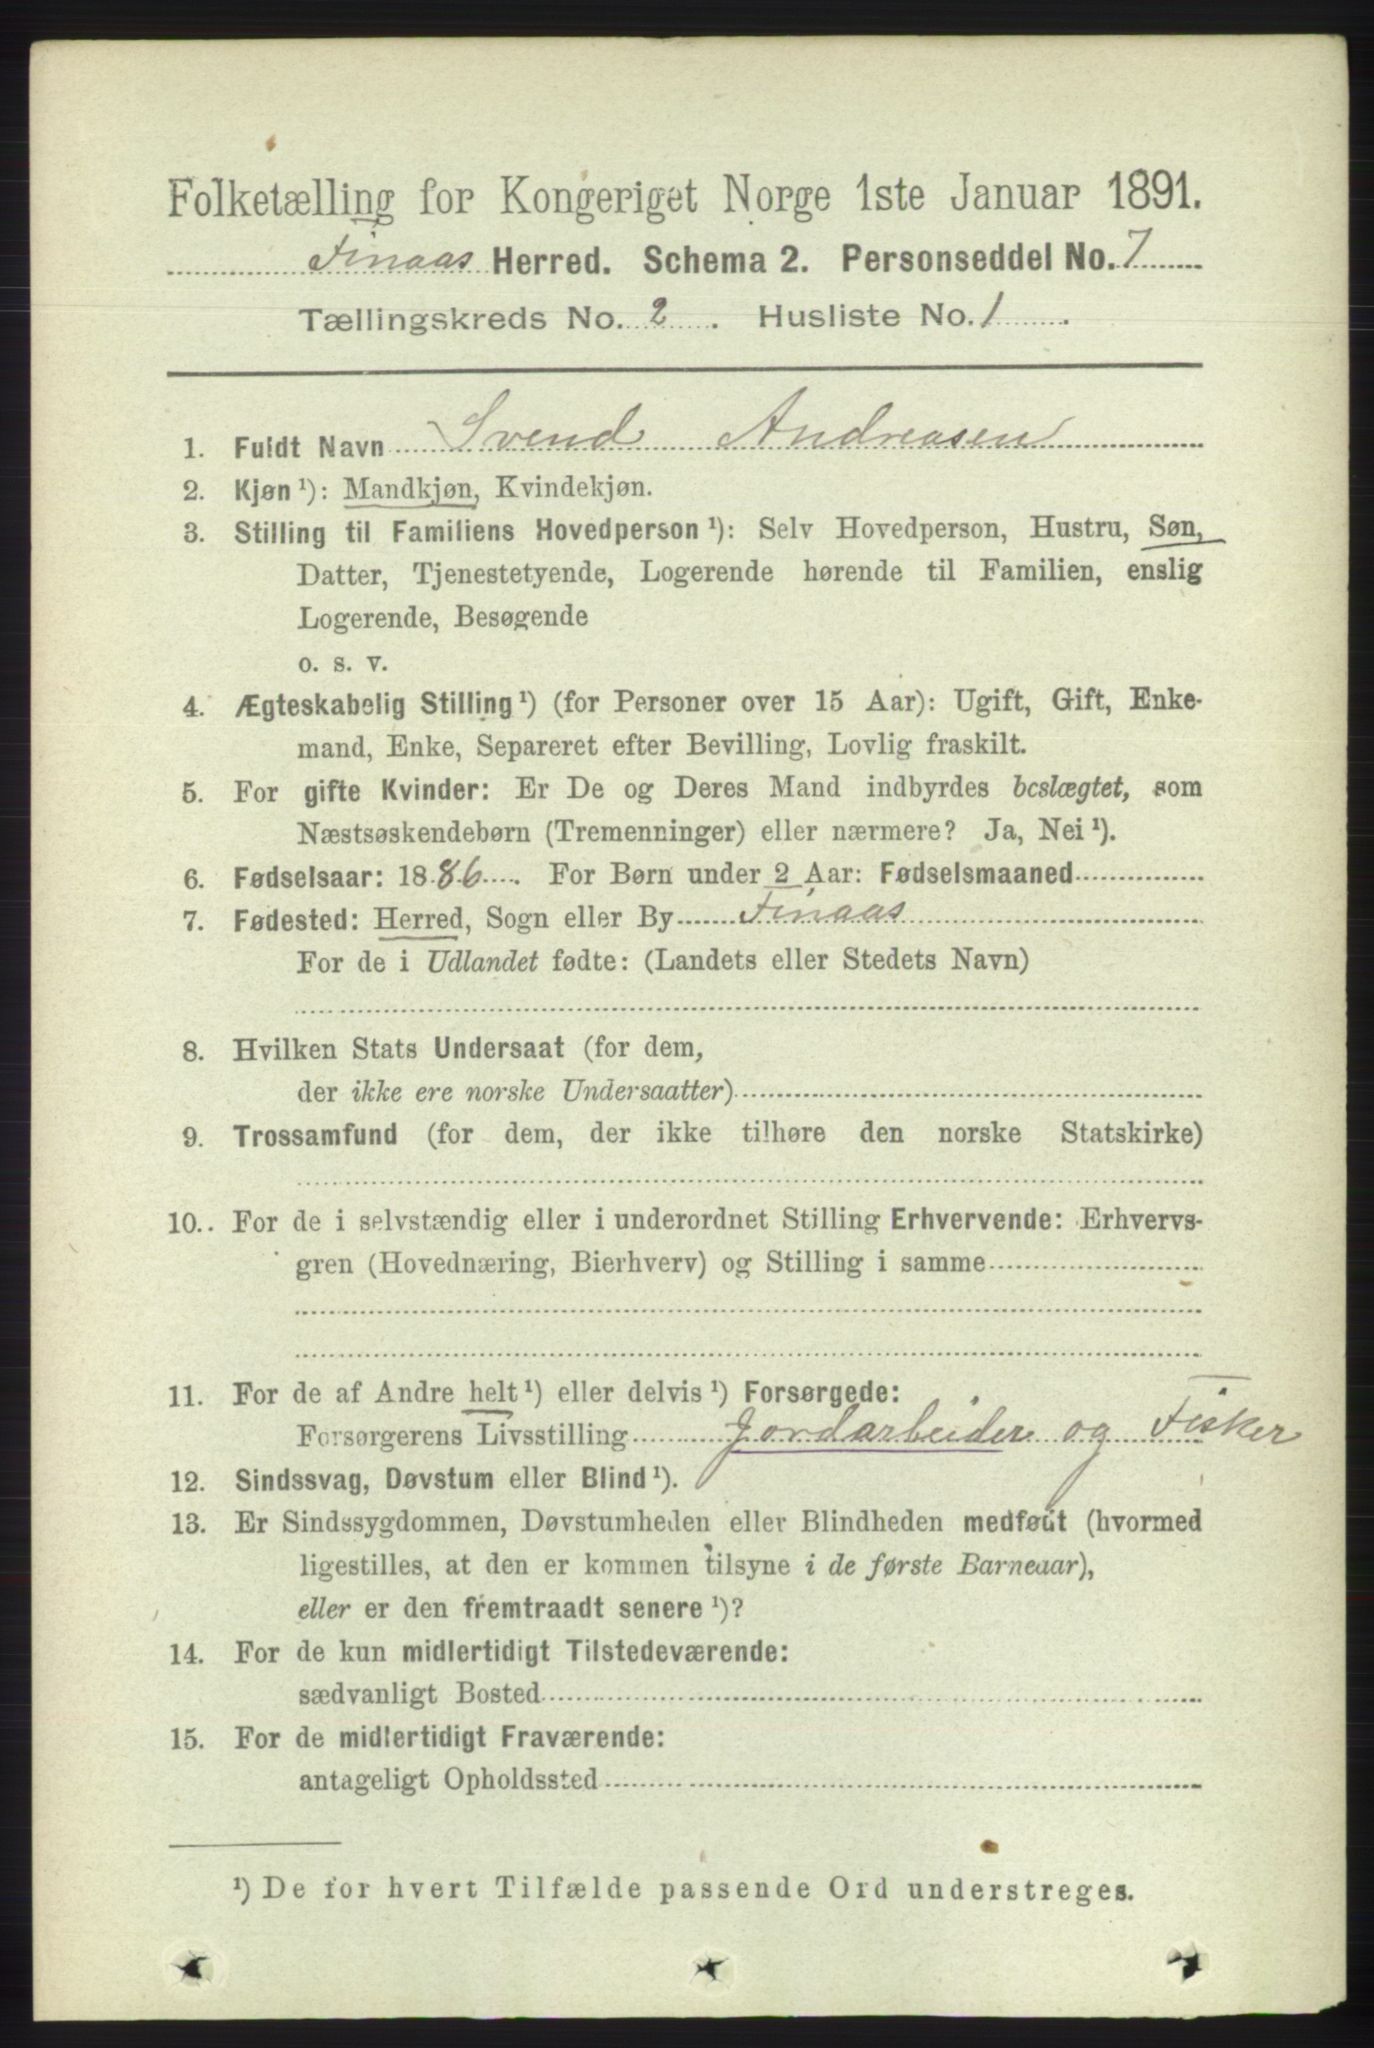 Folketælling for Kongeriget Norge 1ste Januar 1891.
Finaas Herred. Schema 2. Personseddel No. 7
Tællingskreds No. 2. Husliste No. 1.
1. Fuldt Navn Svend Andreasen
2. Kjøn ¹): Mandkjøn, Kvindekjøn.
3. Stilling til Familiens Hovedperson ¹): Selv Hovedperson, Hustru, Søn,
Datter, Tjenestetyende, Logerende hørende til Familien, enslig
Logerende, Besøgende
o. s. v.
4. Ægteskabelig Stilling ¹) (for Personer over 15 Aar): Ugift, Gift, Enke-
mand, Enke, Separeret efter Bevilling, Lovlig fraskilt.
5. For gifte Kvinder: Er De og Deres Mand indbyrdes beslægtet, som
Næstsøskendebørn (Tremenninger) eller nærmere? Ja, Nei ¹).
6. Fødselsaar: 1886. For Børn under 2 Aar: Fødselsmaaned
7. Fødested: Herred, Sogn eller By Finaas
For de i Udlandet fødte: (Landets eller Stedets Navn)
8. Hvilken Stats Undersaat (for dem,
der ikke ere norske Undersaatter)
9. Trossamfund (for dem, der ikke tilhøre den norske Statskirke)
10.. For de i selvstændig eller i underordnet Stilling Erhvervende: Erhvervs-
gren (Hovednæring, Bierhverv) og Stilling i samme
11. For de af Andre helt ¹) eller delvis ¹) Forsørgede:
Forsørgerens Livsstilling Jordarbeider og Fisker
12. Sindssvag, Døvstum eller Blind ¹).
13. Er Sindssygdommen, Døvstumheden eller Blindheden medfødt (hvormed
ligestilles, at den er kommen tilsyne i de første Barneaar),
eller er den fremtraadt senere ¹)?
14. For de kun midlertidigt Tilstedeværende:
sædvanligt Bosted
15. For de midlertidigt Fraværende:
antageligt Opholdssted
¹) De for hvert Tilfælde passende Ord understreges.